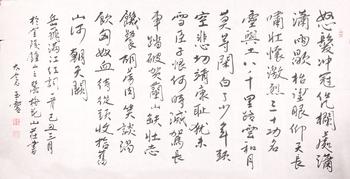 怒髮冲冠凭欄處瀟
瀟雨歇抬望眼仰天長
嘯壯懷激烈三十功名
塵與土八千里路雲和月
莫等閑白了少年頭
空悲切靖康耻猶未
雪臣子恨何時滅駕長
車踏破賀蘭山缺壯志
饑餐胡虜肉笑談渴
飲匈奴血待從頭收拾舊
山河朝天闕
岳飛滿江紅詞 辛巳五三月
於金陵鍾山